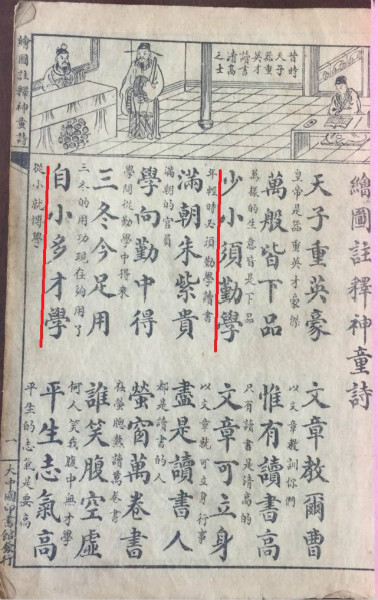 昔時
天子
器重
英才
讀書
清高
之士
繪圖註釋神童詩
天子重英豪 文章教爾曹
皇帝是器重英才豪傑 以文章教訓你們
萬般皆下品 惟有讀書高
萬樣的生意皆是下品 只有讀書是清高的
少小須勤學 文章可立身
年輕時必須勤學讀書 以文章就可立身行事
滿朝朱紫貴 盡是讀書人
滿朝的官員 都是讀書的人
學向勤中得 螢窗萬卷書
學問從勤學中得來 在螢 讀萬卷書
三冬今足用 誰笑腹空虛
三冬的用功現在夠用了 何人笑我腹中無才學
自小多才學 平生志氣高
從小就博學 平生的志氣是要高
繪圖註釋神童詩
一
大中國印書館發行